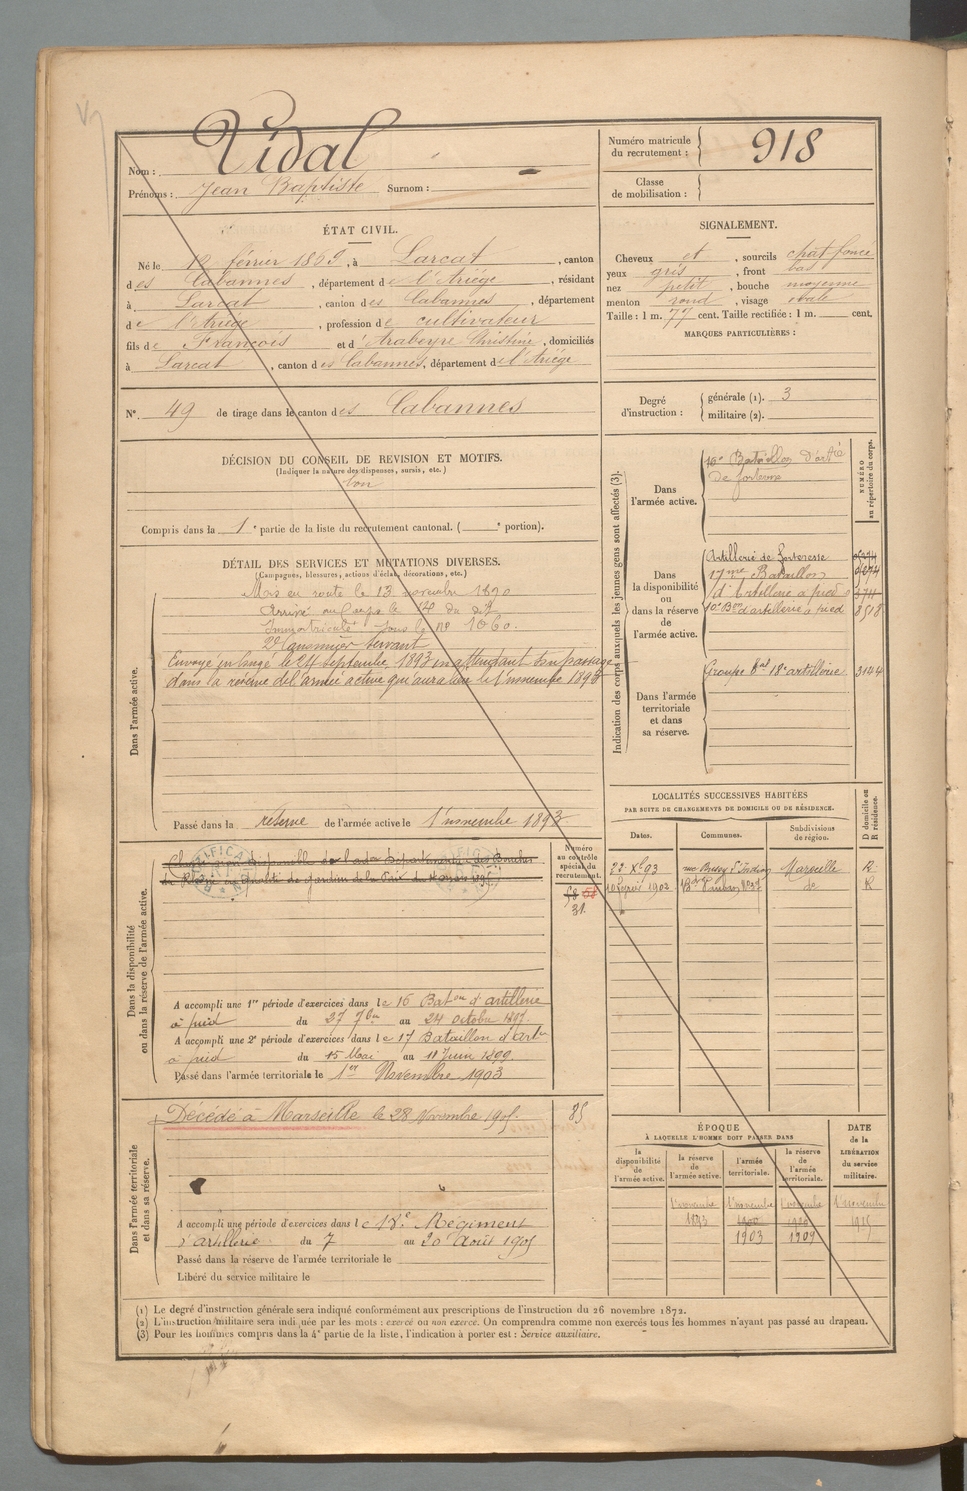 Nom : Vidal
Prénoms : Jean Baptiste Surnom :
Numéro matricule du recrutement : 918
Classe de mobilisation :
ÉTAT CIVIL.
Né le 12 février 1869, à Larcat, canton
des Cabannes, département de l'Ariège, résidant
à Larcat, canton des Cabannes, département
de l'Ariège, profession de cultivateur
fils de François et d'Arabeyre Christine, domiciliés
à Larcat, canton des Cabannes, département de l'Ariège
N° 49 de tirage dans le canton des Cabannes
SIGNALEMENT.
Cheveux et, sourcils chat foncé
yeux gris, front bas
nez petit, bouche moyenne
menton rond, visage ovale
Taille : 1 m. 77 cent. Taille rectifiée : 1 m. cent.
MARQUES PARTICULIÈRES :
Degré d'instruction : générale (1). 3
militaire (2).
DÉCISION DU CONSEIL DE REVISION ET MOTIFS.
(Indiquer la nature des dispenses, sursis, etc.)
bon
Compris dans la 1e partie de la liste du recrutement cantonal. ( e portion).
DÉTAIL DES SERVICES ET MUTATIONS DIVERSES.
(Campagnes, blessures, actions d'éclat, décorations, etc.)
Dans l'armée active.
Mis en route le 13 novembre 1890
Arrivé au Corps le 14 du dit
Immatriculé sous le n° 1060.
2e Canonnier Servant
Envoyé en congé le 24 septembre 1893 en attendant son passage
dans la réserve de l'armée active qui aura lieu le 1er novembre 1893
Passé dans la réserve de l'armée active le 1er novembre 1893
Indication des corps auxquels les jeunes gens sont affectés (3).
NUMÉRO au répertoire du corps.
Dans l'armée active.
Bataillon d'artie
de forteresse
Dans la disponibilité ou dans la réserve de l'armée active.
Artillerie de forteresse
17me Bataillon
d'Artillerie à pied
10e Bon d'artillerie à pied 8518
Dans l'armée territoriale et dans sa réserve.
Groupe 18e artillerie 3144
LOCALITÉS SUCCESSIVES HABITÉES
PAR SUITE DE CHANGEMENTS DE DOMICILE OU DE RÉSIDENCE.
Dates. Communes. Subdivisions de région. D domicile ou R résidence.
22 Xbre 93 rue Marseille R
1902 de R
Dans la disponibilité ou dans la réserve de l'armée active.
Numéro au contrôle spécial du recrutement.
Classé non disponible des Bouches
du Rhône en qualité de gardien de la Paix
31.
A accompli une 1re période d'exercices dans le 16 Baton d'artillerie
à pied du 27 7bre au 24 octobre 1897.
A accompli une 2e période d'exercices dans le 17 Bataillon d'artie
à pied du 15 Mai au 11 Juin 1899
Passé dans l'armée territoriale le 1er Novembre 1903
Dans l'armée territoriale et dans sa réserve.
Décédé à Marseille le 28 Novembre 85
A accompli une période d'exercices dans le 18e Régiment
d'artillerie du 7 au 20 août 1905
Passé dans la réserve de l'armée territoriale le
Libéré du service militaire le
ÉPOQUE
À LAQUELLE L'HOMME DOIT PASSER DANS
la disponibilité de l'armée active. la réserve de l'armée active. l'armée territoriale. la réserve de l'armée territoriale. DATE de la LIBÉRATION du service militaire.
1er novembre 1er novembre 1er novembre 1er novembre
1893 1900 1915
1903 1909
(1) Le degré d'instruction générale sera indiqué conformément aux prescriptions de l'instruction du 26 novembre 1872.
(2) L'instruction militaire sera indiquée par les mots : exercé ou non exercé. On comprendra comme non exercés tous les hommes n'ayant pas passé au drapeau.
(3) Pour les hommes compris dans la 4e partie de la liste, l'indication à porter est : Service auxiliaire.